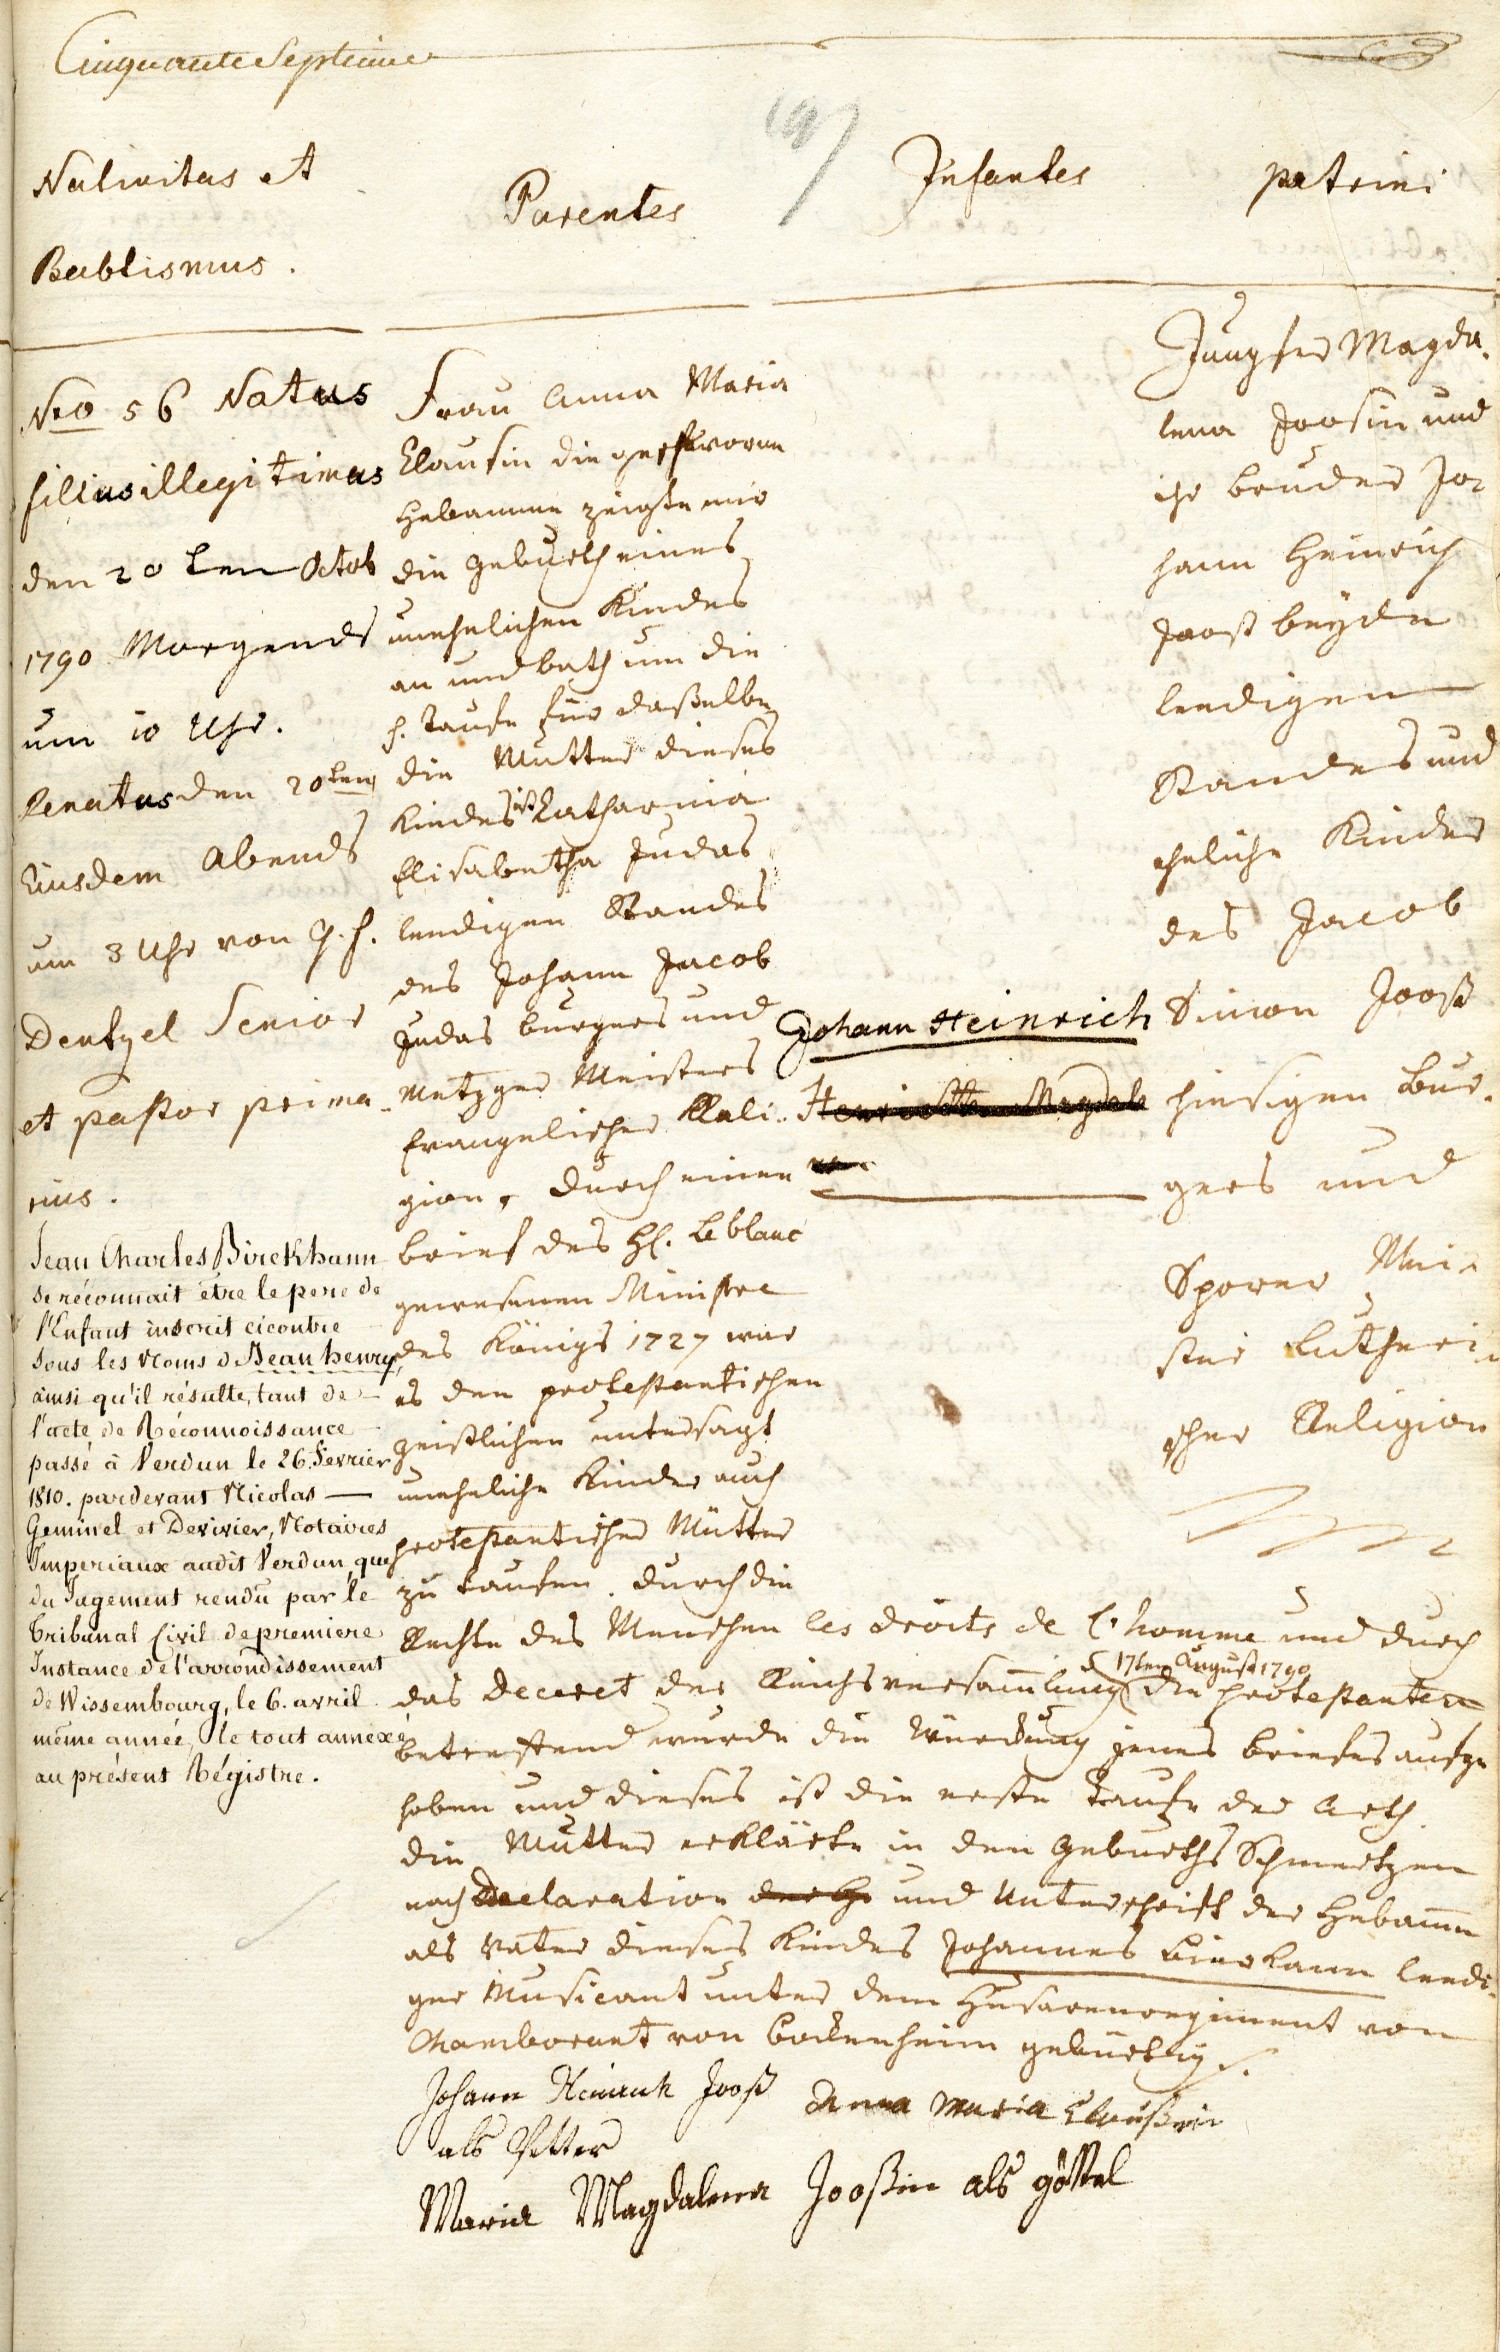 Cinquante Septieme
197
Nativitas et
Babtismus.
Parentes
Infantes
patrini
Nro 56 Natus
filius illegitimus
den 20ten Octob
1790 Morgends
um 10 Uhr.
Renatus den 20ten
Eiusdem Abends
um 3 Uhr von G. h.
Dentzel Senior
et pastor prima-
rius.
Jean Charles Birckhann
se réconnait être le pere de
l'Enfant inscrit cicontre
sous les Noms de Jean henry,
ainsi qu'il résulte, tant de
l'acte de Réconnoissance
passé à Verdun le 26. Fevrier
1810. pardevant Nicolas
Geminel et Devivier, Notaires
Imperiaux audit Verdun, que
du Jugement rendu par le
Tribunal Civil de premiere
Instance de l'arrondissement
de Wissembourg, le 6. avril
même année, le tout annexé
au présent Régistre.
Frau Anna Maria
Clausin die geschworne
Hebamme zeigte mir
die geburth eines
unehelichen Kindes
an und bath um die
h. Taufe für daßelbe
die Mutter dieses
Kindes ist Catharina
Elisabetha Judas
leedigen Standes
des Johann Jacob
Judas burgers und
Metzger Meisters
Evangelischer Reli-
gion, durch einen
brief des H. Leblanc
gewesenen Ministre
des Königs 1727 war
es den protestantischen
geistlichen untersagt
uneheliche Kinder auch
protestantischer Mütter
zu taufen. durch die
Rechte des Menschen les droits de l'homme und durch
das Decret der Reichsversam̅lung 17ten August 1790 die protestanten
betreffend wurde die Würckung jenes briefes aufge
hoben und dieses ist die erste Taufe der Arth.
die Mutter erklärte in den geburths Schmertzen
nach Declaration und Unterschrift der Hebam̅e
als Vater dieses Kindes Johannes Birckann leedi-
ger Musicant unter dem Husarenregiment von
Chamborant von Bockenheim gebürtig.
Johann Heinrich
Henriette Magdale
na
Jungfer Magda-
lena Joosin und
ihr bruder Jo-
hann Heinrich
Jooß beyde
leedigen
Standes und
eheliche Kinder
des Jacob
Simon Jooß
hiesigen Bur-
gers und
Sporer Mei-
ster Lutheri-
scher Religion
Johann Heinrich Jooß
als Petter
Anna Maria Claußin
Maria Magdalena Jooßin als göttel